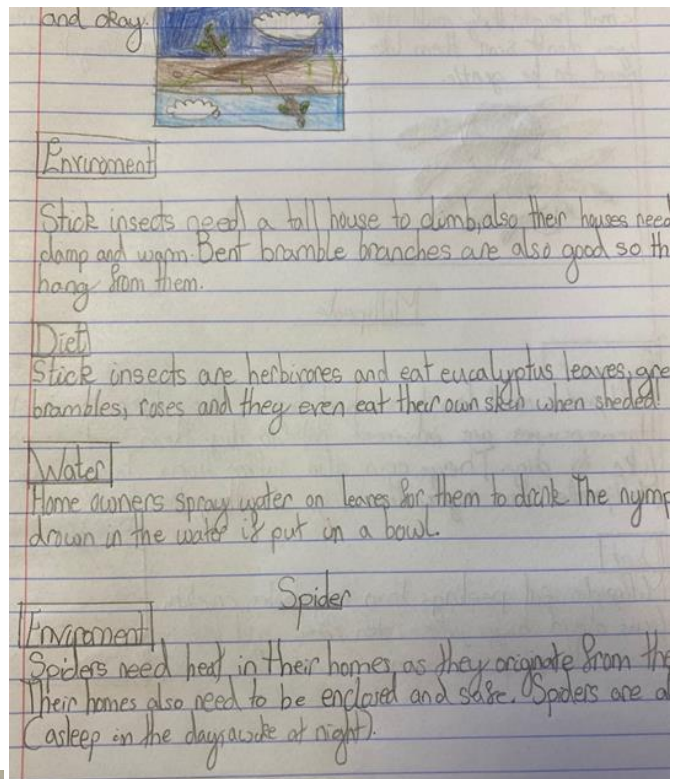 and okay.
Enviroment
Stick insects need a tall house to climb, also their houses need
damp and warm. Bent bramble branches are also good so th
hang from them.
Diet
Stick insects are herbivores and eat eucalyptus leaves, gre
brambles, roses and they even eat their own skin when sheded!
Water
Home owners spray water on leaves for them to drink. The nymp
drown in the water if put in a bowl.
Spider
Enviroment
Spiders need heat in their homes as they originate from the
Their homes also need to be enclosed and safe. Spiders are a
(asleep in the day, awake at night).